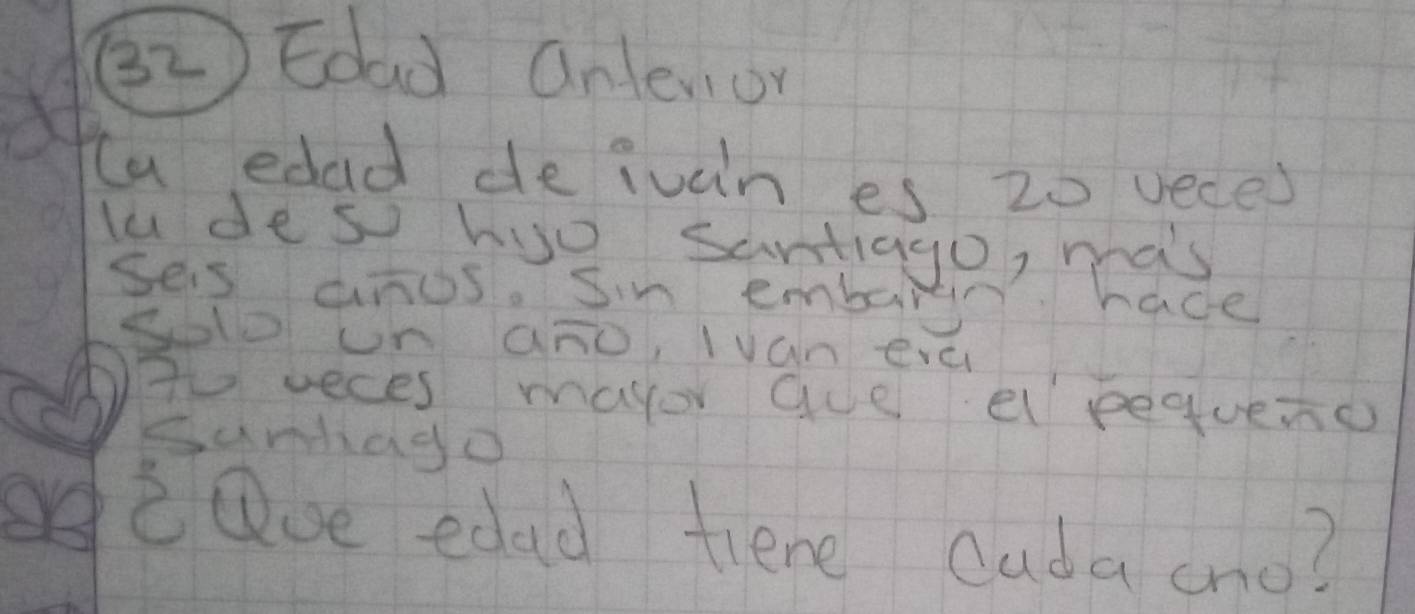 32 Edad Anterior
La edad de iván es 20 veces
la de su hijo Santiago, más
Seis años. Sin embargo hace
solo un año, Ivan era
70 veces mayor que el pequeño
Santiago
¿Que edad tiene Cada uno?